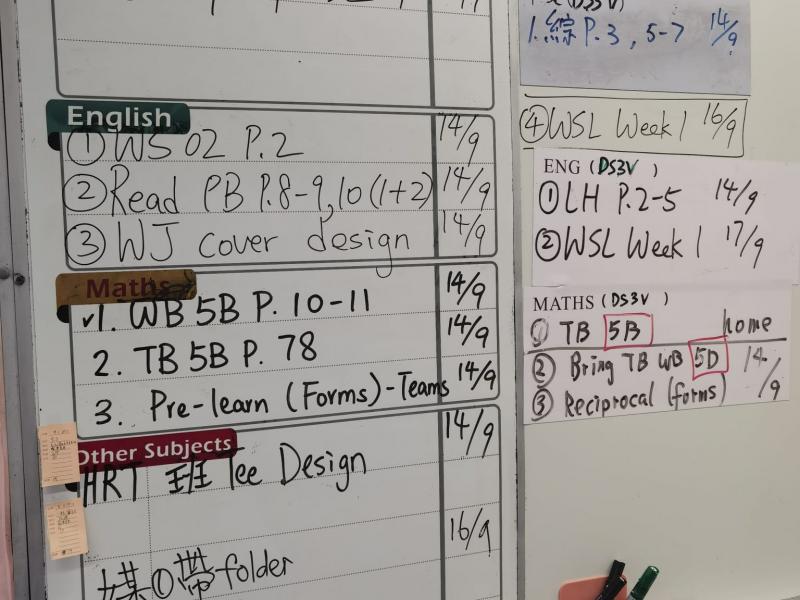 English
① WS 02 P.2 14/9
② Read PB P.8-9, 10 (1+2) 14/9
③ WJ cover design 14/9
Maths
✓1. WB 5B P. 10-11 14/9
2. TB 5B P. 78 14/9
3. Pre-learn (Forms) - Teams 14/9
Other Subjects
HRT 班 Tee Design 14/9
16/9
媒①帶 folder
(DS3V)
1. 綜 P.3, 5-7 14/9
④ WSL Week 1 16/9
ENG (DS3V)
① LH P.2-5 14/9
② WSL Week 1 17/9
MATHS (DS3V)
① TB 5B home
② Bring TB WB 5D 14/9
③ Reciprocal (forms)